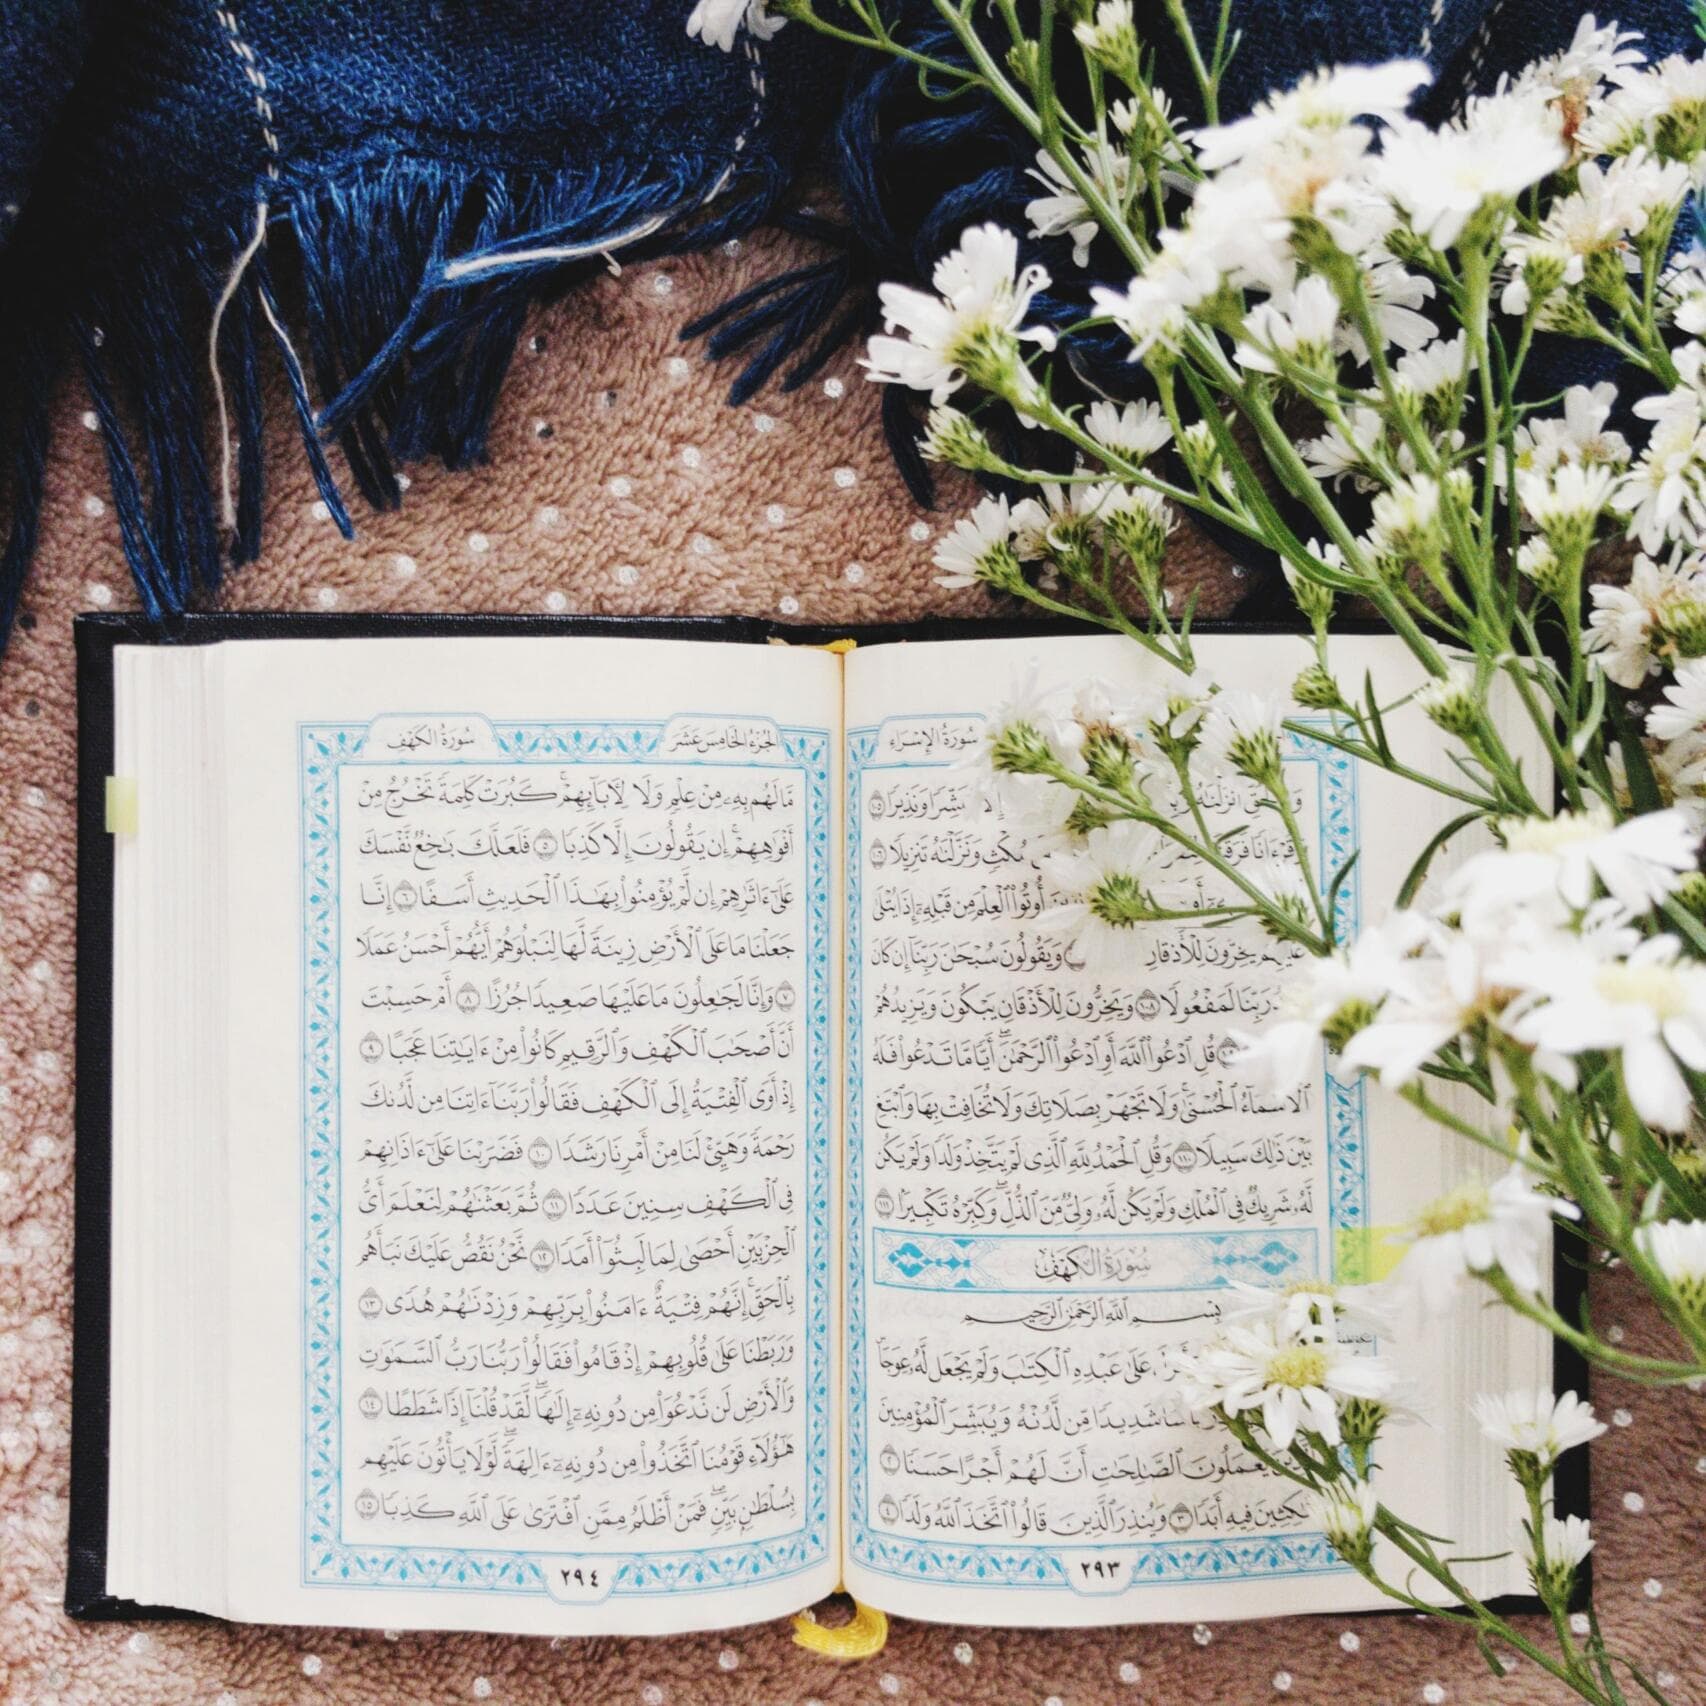 سُورَةُ الإِسْرَاءِ
أَنزَلْنَٰهُ إِلَّا مُبَشِّرًا وَنَذِيرًا ١٠٥
مُكْثٍ وَنَزَّلْنَٰهُ تَنزِيلًا ١٠٦
أُوتُوا۟ ٱلْعِلْمَ مِن قَبْلِهِۦٓ إِذَا يُتْلَىٰ
عَلَيْهِمْ يَخِرُّونَ لِلْأَذْقَانِ وَيَقُولُونَ سُبْحَٰنَ رَبِّنَآ إِن كَانَ
رَبِّنَا لَمَفْعُولًا ١٠٨ وَيَخِرُّونَ لِلْأَذْقَانِ يَبْكُونَ وَيَزِيدُهُمْ
قُلِ ٱدْعُوا۟ ٱللَّهَ أَوِ ٱدْعُوا۟ ٱلرَّحْمَٰنَ ۖ أَيًّا مَّا تَدْعُوا۟ فَلَهُ
ٱلْأَسْمَآءُ ٱلْحُسْنَىٰ ۚ وَلَا تَجْهَرْ بِصَلَاتِكَ وَلَا تُخَافِتْ بِهَا وَٱبْتَغِ
بَيْنَ ذَٰلِكَ سَبِيلًا ١١٠ وَقُلِ ٱلْحَمْدُ لِلَّهِ ٱلَّذِى لَمْ يَتَّخِذْ وَلَدًا وَلَمْ يَكُن
لَّهُۥ شَرِيكٌ فِى ٱلْمُلْكِ وَلَمْ يَكُن لَّهُۥ وَلِىٌّ مِّنَ ٱلذُّلِّ ۖ وَكَبِّرْهُ تَكْبِيرًۢا ١١١
سُورَةُ الكَهْفِ
بِسْمِ ٱللَّهِ ٱلرَّحْمَٰنِ ٱلرَّحِيمِ
عَلَىٰ عَبْدِهِ ٱلْكِتَٰبَ وَلَمْ يَجْعَل لَّهُۥ عِوَجَا ۜ
بَأْسًا شَدِيدًا مِّن لَّدُنْهُ وَيُبَشِّرَ ٱلْمُؤْمِنِينَ
يَعْمَلُونَ ٱلصَّٰلِحَٰتِ أَنَّ لَهُمْ أَجْرًا حَسَنًا ٢
مَّٰكِثِينَ فِيهِ أَبَدًا ٣ وَيُنذِرَ ٱلَّذِينَ قَالُوا۟ ٱتَّخَذَ ٱللَّهُ وَلَدًا ٤
٢٩٣
الجُزْءُ الخَامِسَ عَشَرَ
سُورَةُ الكَهْفِ
مَّا لَهُم بِهِۦ مِنْ عِلْمٍ وَلَا لِءَابَآئِهِمْ ۚ كَبُرَتْ كَلِمَةً تَخْرُجُ مِنْ
أَفْوَٰهِهِمْ ۚ إِن يَقُولُونَ إِلَّا كَذِبًا ٥ فَلَعَلَّكَ بَٰخِعٌ نَّفْسَكَ
عَلَىٰٓ ءَاثَٰرِهِمْ إِن لَّمْ يُؤْمِنُوا۟ بِهَٰذَا ٱلْحَدِيثِ أَسَفًا ٦ إِنَّا
جَعَلْنَا مَا عَلَى ٱلْأَرْضِ زِينَةً لَّهَا لِنَبْلُوَهُمْ أَيُّهُمْ أَحْسَنُ عَمَلًا
٧ وَإِنَّا لَجَٰعِلُونَ مَا عَلَيْهَا صَعِيدًا جُرُزًا ٨ أَمْ حَسِبْتَ
أَنَّ أَصْحَٰبَ ٱلْكَهْفِ وَٱلرَّقِيمِ كَانُوا۟ مِنْ ءَايَٰتِنَا عَجَبًا ٩
إِذْ أَوَى ٱلْفِتْيَةُ إِلَى ٱلْكَهْفِ فَقَالُوا۟ رَبَّنَآ ءَاتِنَا مِن لَّدُنكَ
رَحْمَةً وَهَيِّئْ لَنَا مِنْ أَمْرِنَا رَشَدًا ١٠ فَضَرَبْنَا عَلَىٰٓ ءَاذَانِهِمْ
فِى ٱلْكَهْفِ سِنِينَ عَدَدًا ١١ ثُمَّ بَعَثْنَٰهُمْ لِنَعْلَمَ أَىُّ
ٱلْحِزْبَيْنِ أَحْصَىٰ لِمَا لَبِثُوٓا۟ أَمَدًا ١٢ نَّحْنُ نَقُصُّ عَلَيْكَ نَبَأَهُم
بِٱلْحَقِّ ۚ إِنَّهُمْ فِتْيَةٌ ءَامَنُوا۟ بِرَبِّهِمْ وَزِدْنَٰهُمْ هُدًى ١٣
وَرَبَطْنَا عَلَىٰ قُلُوبِهِمْ إِذْ قَامُوا۟ فَقَالُوا۟ رَبُّنَا رَبُّ ٱلسَّمَٰوَٰتِ
وَٱلْأَرْضِ لَن نَّدْعُوَا۟ مِن دُونِهِۦٓ إِلَٰهًا ۖ لَّقَدْ قُلْنَآ إِذًا شَطَطًا ١٤
هَٰٓؤُلَآءِ قَوْمُنَا ٱتَّخَذُوا۟ مِن دُونِهِۦٓ ءَالِهَةً ۖ لَّوْلَا يَأْتُونَ عَلَيْهِم
بِسُلْطَٰنٍۭ بَيِّنٍ ۖ فَمَنْ أَظْلَمُ مِمَّنِ ٱفْتَرَىٰ عَلَى ٱللَّهِ كَذِبًا ١٥
٢٩٤